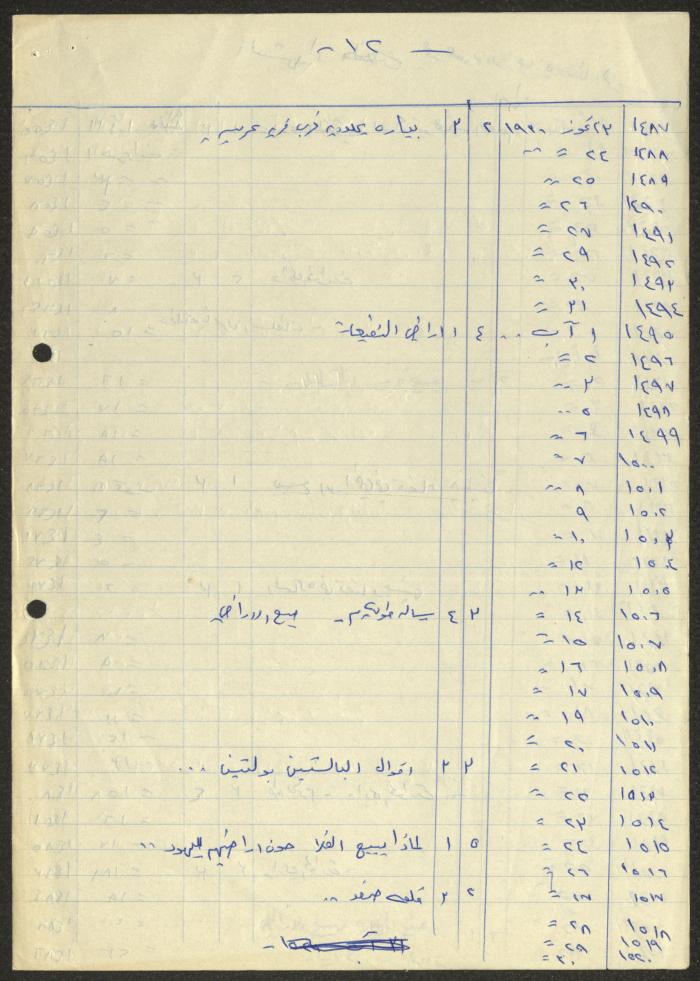 — ١٢ -
١٤٨٧ ٢٣ تموز ١٩٣٠ ٢ ٣ بياره يهودي قرب قريه عربيه
١٤٨٨ ٢٤ =
١٤٨٩ ٢٥ =
١٤٩٠ ٢٦ =
١٤٩١ ٢٧ =
١٤٩٢ ٢٩ =
١٤٩٣ ٣٠ =
١٤٩٤ ٣١ =
١٤٩٥ ١ آب .. ٤ ١ اراضي النفيعات
١٤٩٦ ٢ =
١٤٩٧ ٣ =
١٤٩٨ ٥ ..
١٤٩٩ ٦ =
١٥٠٠ ٧ =
١٥٠١ ٨ =
١٥٠٢ ٩
١٥٠٣ ١٠ =
١٥٠٤ ١٢ =
١٥٠٥ ١٣ =
١٥٠٦ ١٤ = ٣ ٤ رساله طولكرم - بيع الاراضي
١٥٠٧ ١٥ =
١٥٠٨ ١٦ =
١٥٠٩ ١٧ =
١٥١٠ ١٩ =
١٥١١ ٢٠ =
١٥١٢ ٢١ = ٣ ٣ اقوال البالستين بولتين ...
١٥١٣ ٢٢ =
١٥١٤ ٢٣ =
١٥١٥ ٢٤ = ٥ ١ لماذا يبيع الفلاحون اراضيهم لليهود ..
١٥١٦ ٢٦ =
١٥١٧ ٢٧ = ٢ ٣ قلعه صفد ..
١٥١٨ ٢٨ =
١٥١٩ ٢٩ =
١٥٢٠ ٣٠ =